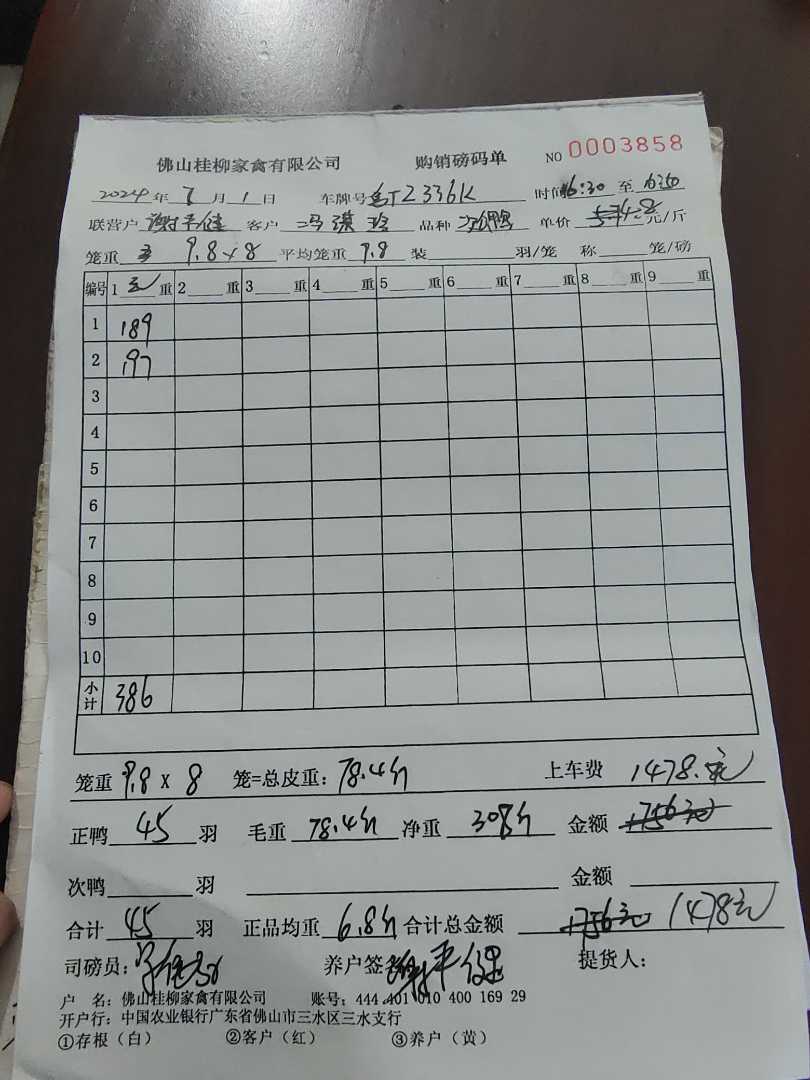 佛山桂柳家禽有限公司 购销磅码单 NO 0003858
2024年 7月 1日 车牌号 Z2336K 时间 16:30 至
联营户 谢平健 客户 冯 品种 次鸭 单价 元/斤
笼重 9.8×8 平均笼重 9.8 装 羽/笼 称 笼/磅
编号 1 重 2 重 3 重 4 重 5 重 6 重 7 重 8 重 9 重
1 189
2 197
3
4
5
6
7
8
9
10
小计 386
笼重 9.8 X 8 笼=总皮重: 78.4斤 上车费 1478.元
正鸭 45 羽 毛重 78.4斤 净重 308斤 金额 1756元
次鸭 羽 金额
合计 45 羽 正品均重 6.8斤 合计总金额 1756元 1478元
司磅员: 养户签 谢平健 提货人:
户 名: 佛山桂柳家禽有限公司 账号: 444 401 010 400 169 29
开户行: 中国农业银行广东省佛山市三水区三水支行
①存根（白） ②客户（红） ③养户（黄）